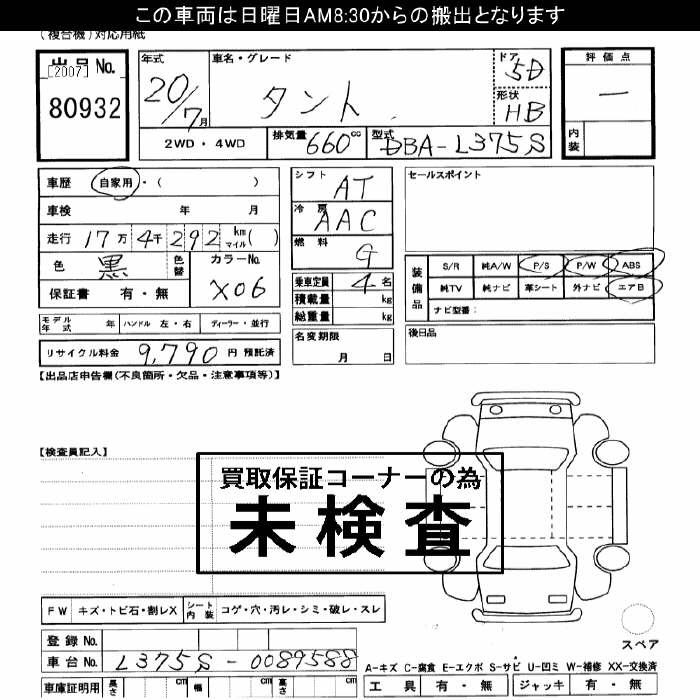 この車両は日曜日AM8:30からの搬出となります
(複合機)対応用紙
出品No.
[2007]
80932
年式
20/7月
車名・グレード
タント
ドア 5D
形状 HB
2WD・4WD
排気量 660cc
型式 DBA-L375S
評価点
一
内装
車歴 自家用・( )
車検 年 月
走行 17万4千292 km マイル( )
色 黒 色替
カラーNo. X06
保証書 有・無
シフト AT
冷房 AAC
燃料 G
乗車定員 4名
積載量 kg
総重量 kg
セールスポイント
装備品
S/R 純A/W P/S P/W ABS
純TV 純ナビ 革シート 外ナビ エアB
ナビ型番:
モデル年式 年 ハンドル 左・右 ディーラー・並行
名変期限
月 日
後日品
リサイクル料金 9,790 円 預託済
【出品店申告欄(不良箇所・欠品・注意事項等)】
【検査員記入】
買取保証コーナーの為
未検査
FW キズ・トビ石・割レX シート内装 コゲ・穴・汚レ・シミ・破レ・スレ
スペア
登録No.
車台No. L375S-0089588
車庫証明用 長さ cm 幅 cm 高さ cm
A-キズ C-腐食 E-エクボ S-サビ U-凹ミ W-補修 XX-交換済
工具 有・無 ジャッキ 有・無